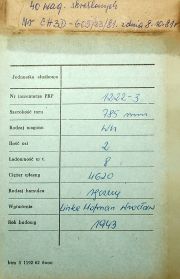 40 wag. skreślonych
Nr EH3D-605/23/81. z dnia 8.10.81r
Jednostka służbowa
Nr inwentarza PKP 1222-3
Szerokość toru 785 mm
Rodzaj wagonu Wh
Ilość osi 2
Ładowność w t. 8
Ciężar własny 4620
Rodzaj hamulca ręczny
Wytwórnia Linke Hofman Wrocław
Rok budowy 1943